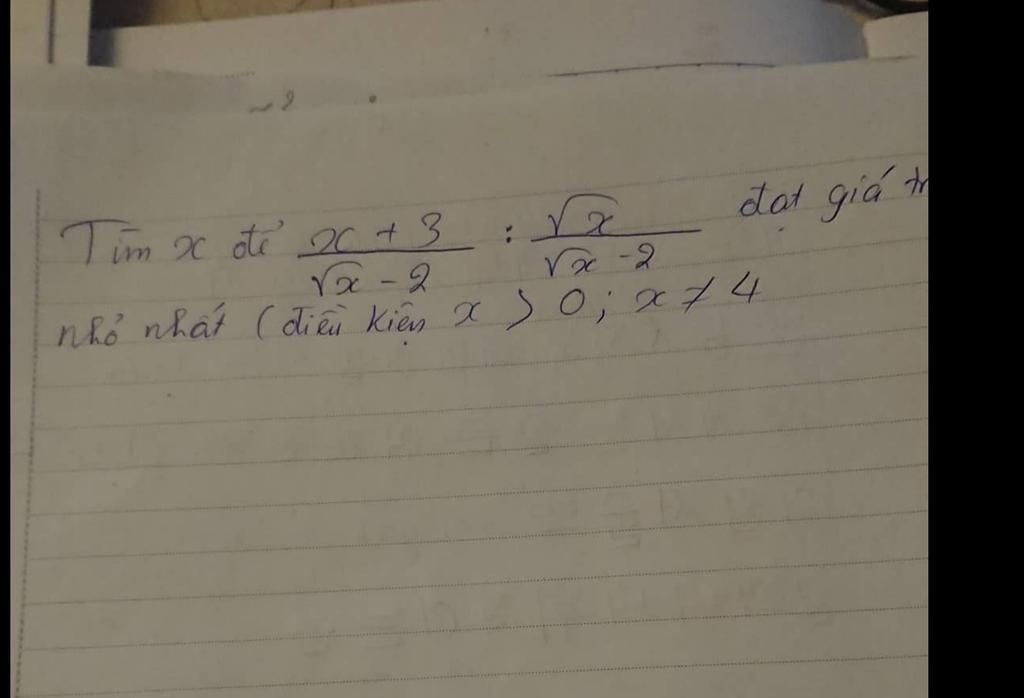 Tìm x để \frac{x + 3}{\sqrt{x} - 2} : \frac{\sqrt{x}}{\sqrt{x} - 2} đạt giá tr
nhỏ nhất (điều kiện x > 0; x ≠ 4